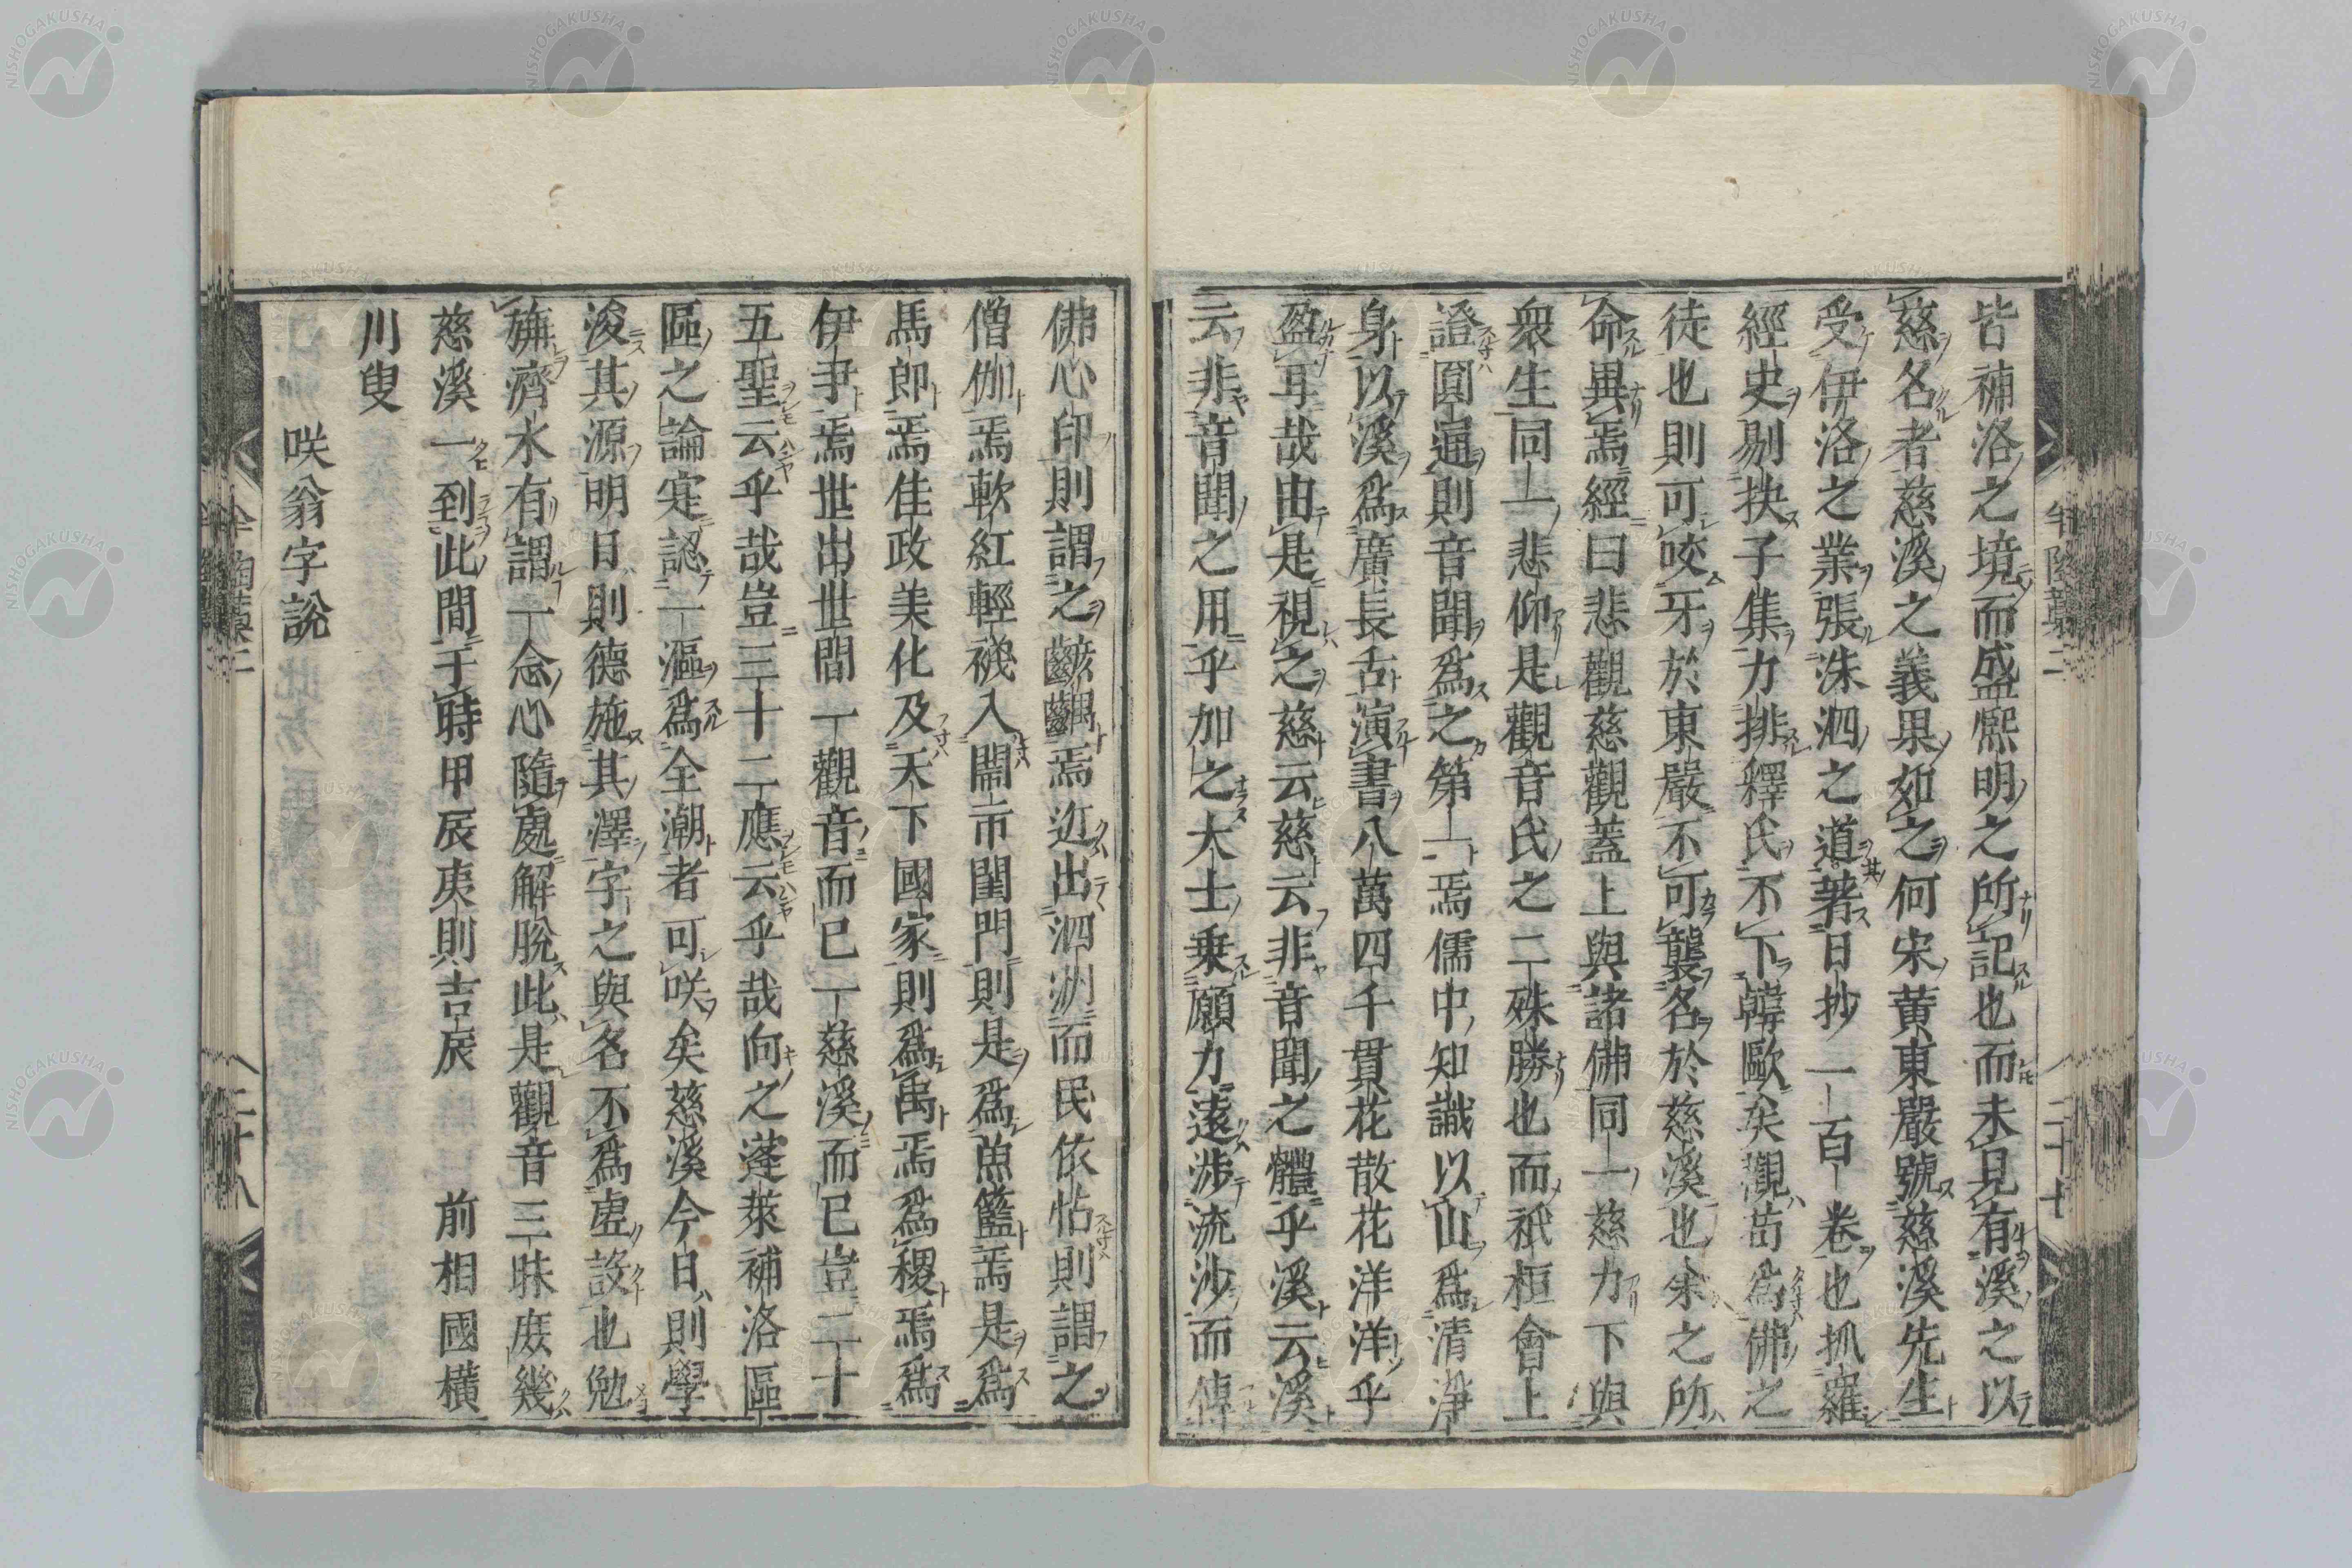 皆補洛之境而盛熈明之所記也而未見有溪之以
慈名者慈溪之義果如之何宋黄東嚴號慈溪先生
受伊洛之業張洙泗之道著日抄一百卷也抓羅
經史剔抉子集力排釋氏不下韓歐矣覯苟爲佛之
徒也則可咬牙於東嚴不可襲名於慈溪也余之所
命異焉經曰悲觀慈觀蓋上與諸佛同一慈力下與
衆生同一悲仰是觀音氏之二殊勝也而祇桓會上
證圓通則音聞爲之第一焉儒中知識以山爲清淨
身以溪爲廣長舌演書八萬四千貫花散花洋洋乎
盈耳哉由是視之慈云慈云非音聞之體乎溪云溪
云非音聞之用乎加之大士乗願力遠渉流沙而傳
佛心印則謂之齾齵焉近出泗洲而民依怙則謂之
僧伽焉軟紅輕襪入閙市闤門則是爲魚籃焉是爲
馬郎焉佳政美化及天下國家則爲禹焉爲稷焉爲
伊尹焉世出世間一觀音而已一慈溪而已豈二十
五聖云乎哉豈三十二應云乎哉向之蓬萊補洛區
區之論定認一漚爲全潮者可咲矣慈溪今日則學
浚其源明日則德施其澤字之與名不爲虚設也勉
旃濟水有謂一念心隨處解脱此是觀音三昧庶幾
慈溪一到此間于時甲辰夷則吉辰 前相國横
川叟
咲翁字説
二十七
二十八